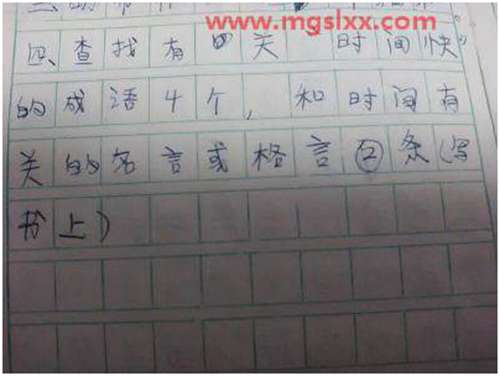 www.mgslxx.com
四、查找有关“时间快”
的成语4个，和时间有
关的名言或格言②条（写
书上）